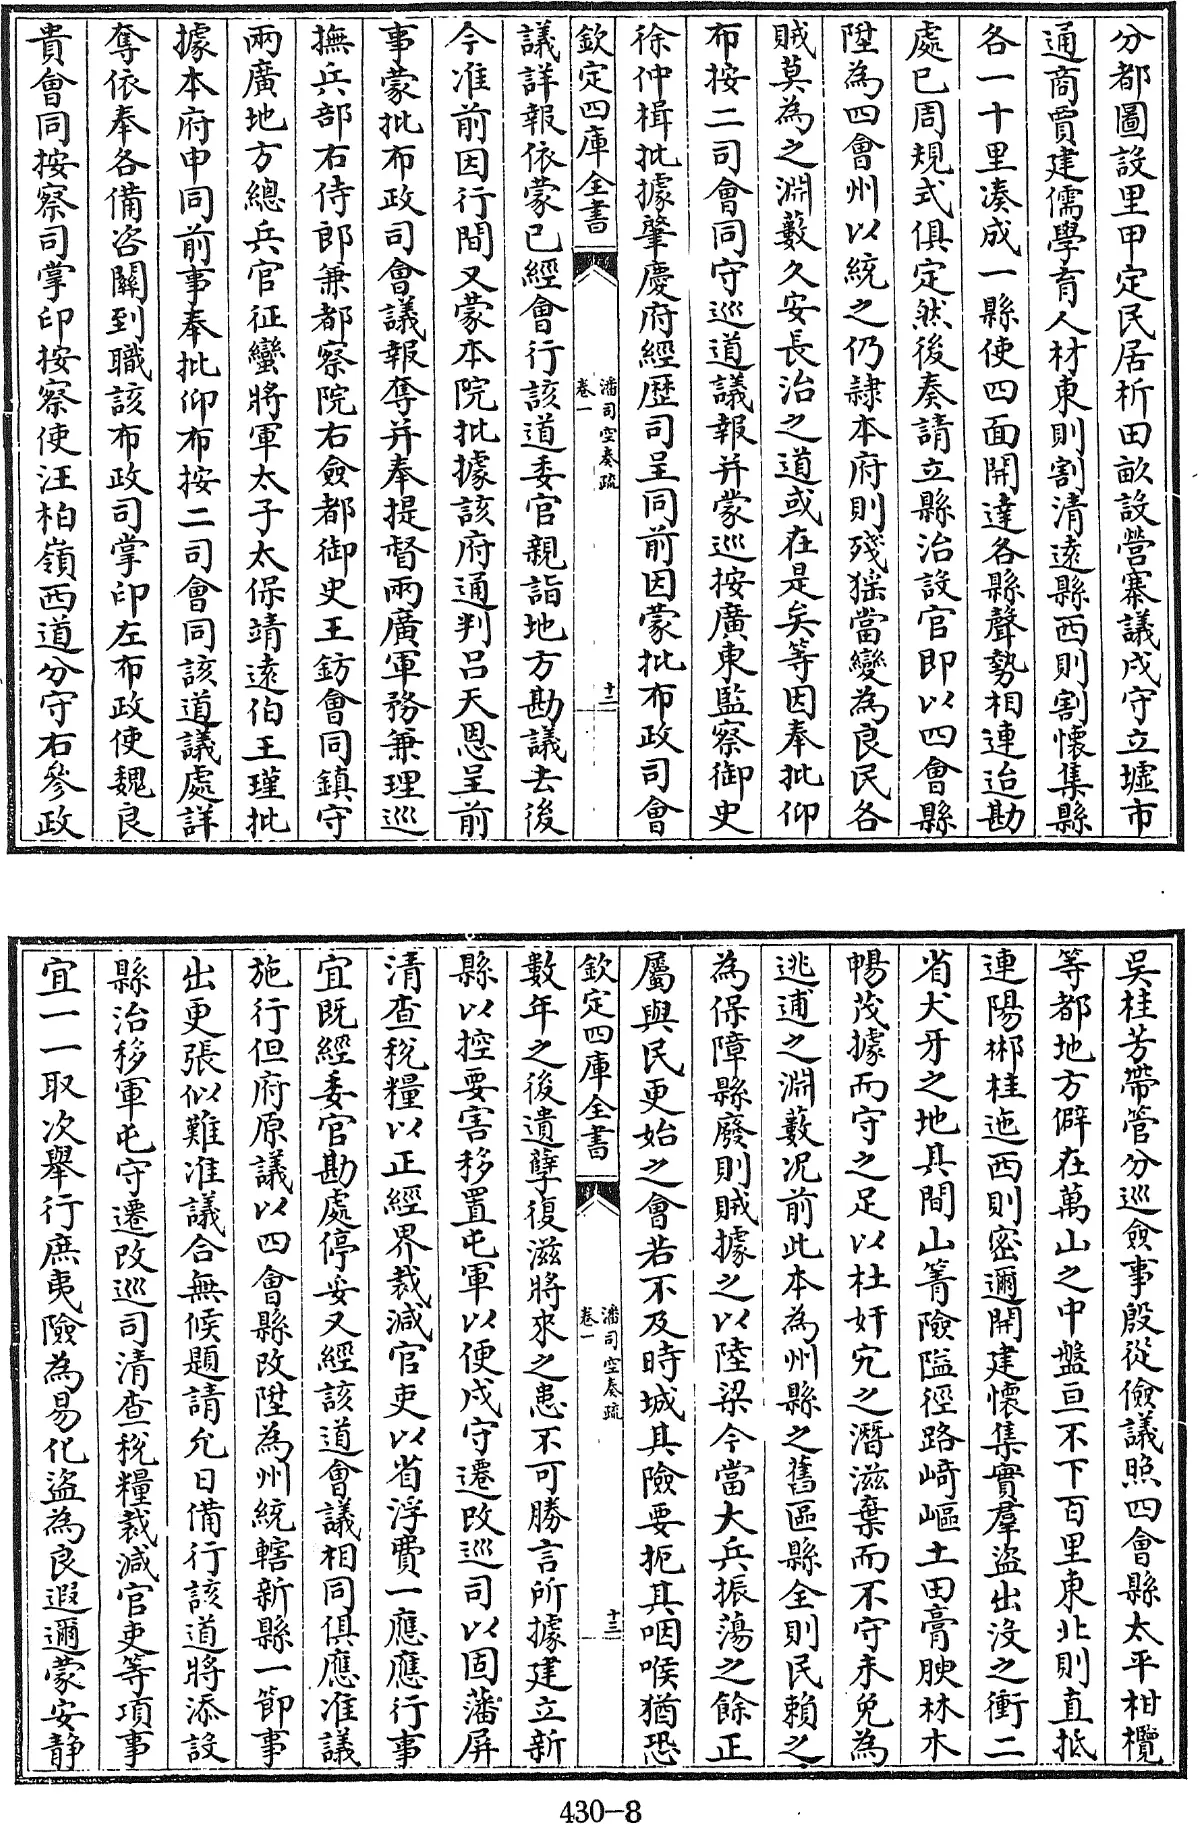 分都圖設里甲定民居析田畝設營寨議戍守立墟市
通商賈建儒學育人材東則割清遠縣西則割懷集縣
各一十里湊成一縣使四面開達各縣聲勢相連迨勘
處已周規式俱定然後奏請立縣治設官即以四會縣
陞為四會州以統之仍隷本府則殘猺當變為良民各
賊莫為之淵藪久安長治之道或在是矣等因奉批仰
布按二司會同守巡道議報并蒙巡按廣東監察御史
徐仲楫批據肇慶府經歴司呈同前因蒙批布政司會
欽定四庫全書
潘司空奏疏
卷一
十二
議詳報依蒙已經會行該道委官親詣地方勘議去後
今准前因行間又蒙本院批據該府通判呂天恩呈前
事蒙批布政司會議報奪并奉提督兩廣軍務兼理巡
撫兵部右侍郎兼都察院右僉都御史王鈁會同鎮守
兩廣地方總兵官征蠻將軍太子太保靖遠伯王瑾批
據本府申同前事奉批仰布按二司會同該道議處詳
奪依奉各備咨關到職該布政司掌印左布政使魏良
貴會同按察司掌印按察使汪柏嶺西道分守右參政
吳桂芳帶管分巡僉事殷從儉議照四會縣太平柑欖
等都地方僻在萬山之中盤亘不下百里東北則直抵
連陽郴桂迤西則密邇開建懷集實羣盜出沒之衝二
省犬牙之地具間山箐險隘徑路崎嶇土田膏腴林木
暢茂據而守之足以杜奸宄之潛滋棄而不守未免為
逃逋之淵藪况前此本為州縣之舊區縣全則民賴之
為保障縣廢則賊據之以陸梁今當大兵振蕩之餘正
屬與民更始之會若不及時城其險要扼其咽喉猶恐
欽定四庫全書
潘司空奏疏
卷一
十三
數年之後遺孽復滋將來之患不可勝言所據建立新
縣以控要害移置屯軍以便戍守遷改巡司以固藩屏
清查稅糧以正經界裁減官吏以省浮費一應應行事
宜既經委官勘處停妥又經該道會議相同俱應准議
施行但府原議以四會縣改陞為州統轄新縣一節事
出更張似難准議合無候題請允日備行該道將添設
縣治移軍屯守遷改巡司清查稅糧裁減官吏等項事
宜一一取次舉行庶夷險為易化盜為良遐邇蒙安靜
430-8